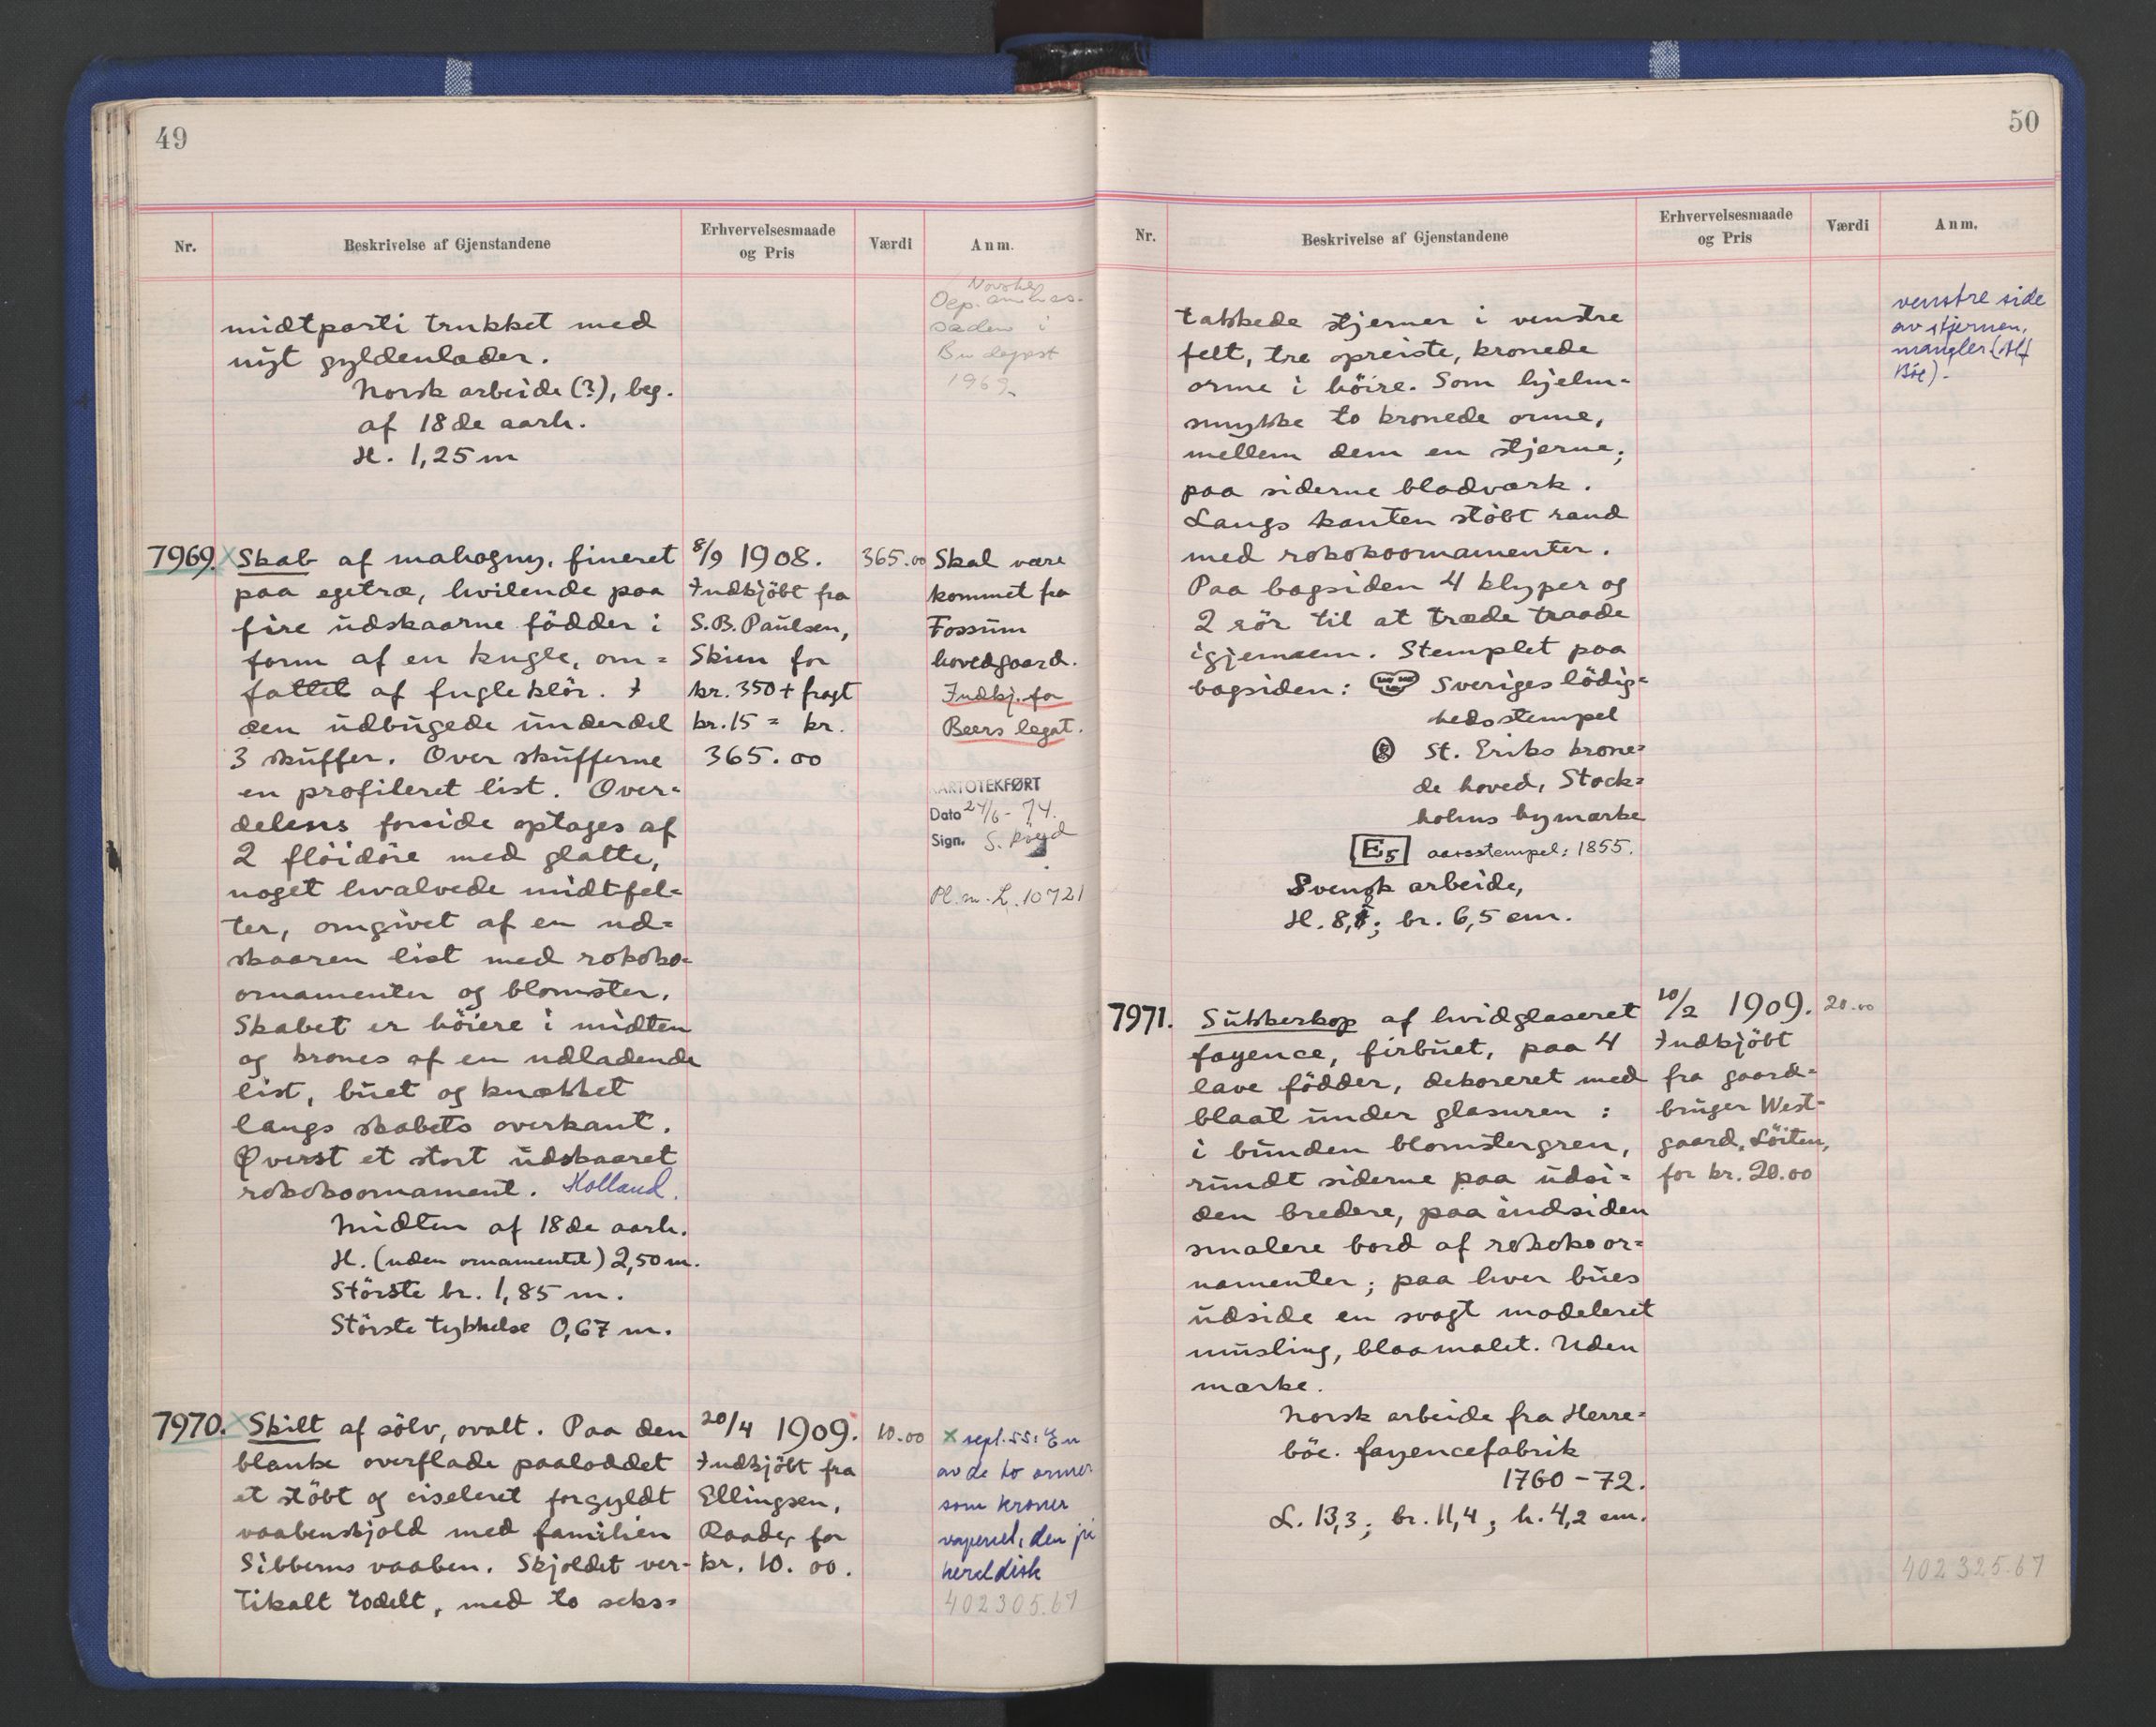 49
Nr.
Beskrivelse af Gjenstandene
Erhvervelsesmaade
og Pris
Værdi
Anm.
midtparti trukket med
nyt gyldenlæder.
Norsk arbeide (?), beg.
af 18de aarh.
H. 1,25 m
Norske
Dep. ambas-
saden i
Budapest
1969.
7969.
Skab af mahogny, fineret
paa egetræ, hvilende paa
fire udskaarne födder i
form af en kugle, om=
fattet af fugleklör. I
den udbugede underdel
3 skuffer. Over skufferne
en profileret list. Over=
delens forside optages af
2 flöidöre med glatte,
noget hvalvede midtfel=
ter, omgivet af en ud=
skaaren list med rokoko=
ornamenter og blomster.
Skabet er höiere i midten
og krones af en udladende
list, buet og knækket
langs skabets overkant.
Øverst et stort udskaaret
rokokoornament. Holland.
Midten af 18de aarh.
H. (uden ornamentet) 2,50 m.
Störste br. 1,85 m.
Störste tykkelse 0,67 m.
8/9 1908.
Indkjöbt fra
S.B. Paulsen,
Skien for
kr. 350 + fragt
kr. 15 = kr.
365.00
365.00
Skal være
kommet fra
Fossum
hovedgaard.
Indkj. for
Beers legat.
KARTOTEKFØRT
Dato 24/6 - 74.
Sign. S.
Pl. nr. L. 10721
7970.
Skilt af sölv, ovalt. Paa den
blanke overflade paaloddet
et stöbt og ciseleret forgyldt
vaabenskjold med familien
Sibberns vaaben. Skjoldet ver-
tikalt todelt, med to seks=
20/4 1909.
Indkjöbt fra
Ellingsen,
Raade, for
kr. 10.00.
10.00
x sept. 55: En
av de to ormer
som kroner
våpenet, den på
heraldisk
402305.67
50
Nr.
Beskrivelse af Gjenstandene
Erhvervelsesmaade
og Pris
Værdi
Anm.
takkede stjerner i venstre
felt, tre opreiste, kronede
orme i höire. Som hjelm-
smykke to kronede orme,
mellem dem en stjerne;
paa siderne bladværk.
Langs kanten stöbt rand
med rokokoornamenter.
Paa bagsiden 4 klyper og
2 rör til at træde traade
igjennem. Stemplet paa
bagsiden: Sveriges lödig=
hedsstempel
St. Eriks krone=
de hoved, Stock=
holms bymærke
E5 aarsstempel: 1855.
Svensk arbeide,
H. 8, ; br. 6,5 cm.
venstre side
av stjernen,
mangler (Alf
Bøe).
7971.
Sukkerkop af hvidglaseret
fayence, firbuet, paa 4
lave födder, dekoreret med
blaat under glasuren:
i bunden blomstergren,
rundt siderne paa udsi=
den bredere, paa indsiden
smalere bord af rokokoor=
namenter; paa hver bues
udside en svagt modeleret
musling, blaamalet. Uden
mærke.
Norsk arbeide fra Herre=
böe. fayencefabrik
1760-72.
L. 13,3; br. 11,4; h. 4,2 cm.
10/2 1909.
Indkjöbt
fra gaard=
bruger West-
gaard, Löiten,
for kr. 20.00
20.00
402325.67